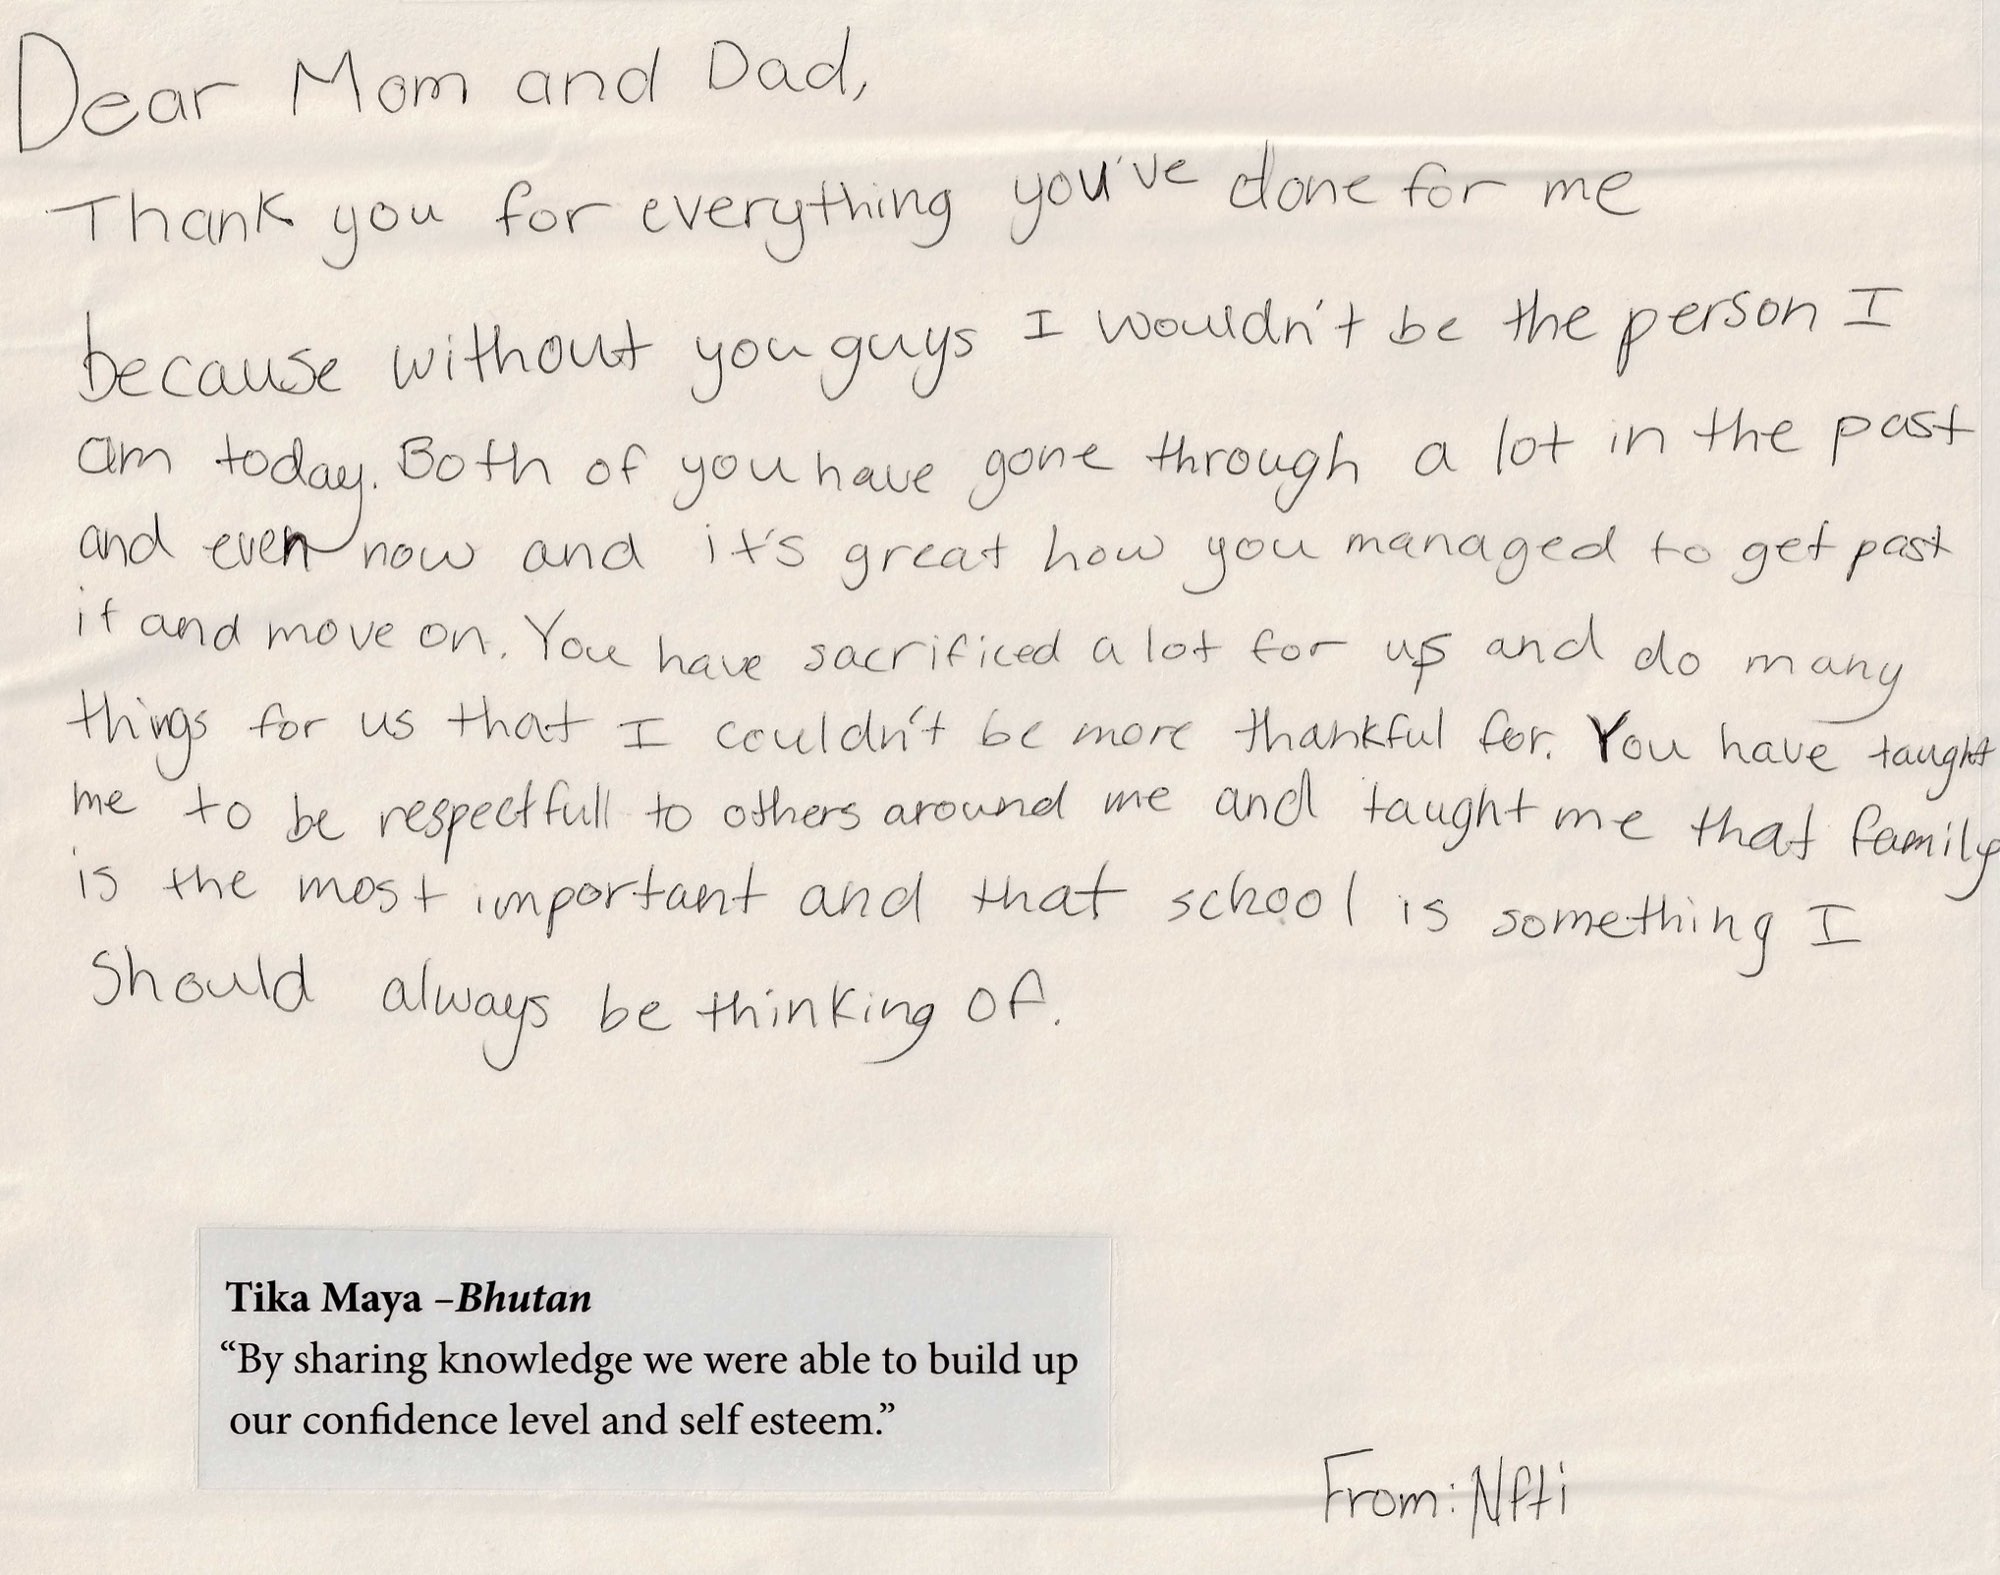 Dear Mom and Dad,
Thank you for everything you've done for me
because without you guys I wouldn't be the person I
am today. Both of you have gone through a lot in the past
and even now and it's great how you managed to get past
it and move on. You have sacrificed a lot for us and do many
things for us that I couldn't be more thankful for. You have taught
me to be respectfull to others around me and taught me that family
is the most important and that school is something I
should always be thinking of.
Tika Maya –Bhutan
“By sharing knowledge we were able to build up
our confidence level and self esteem.”
From: Nfti